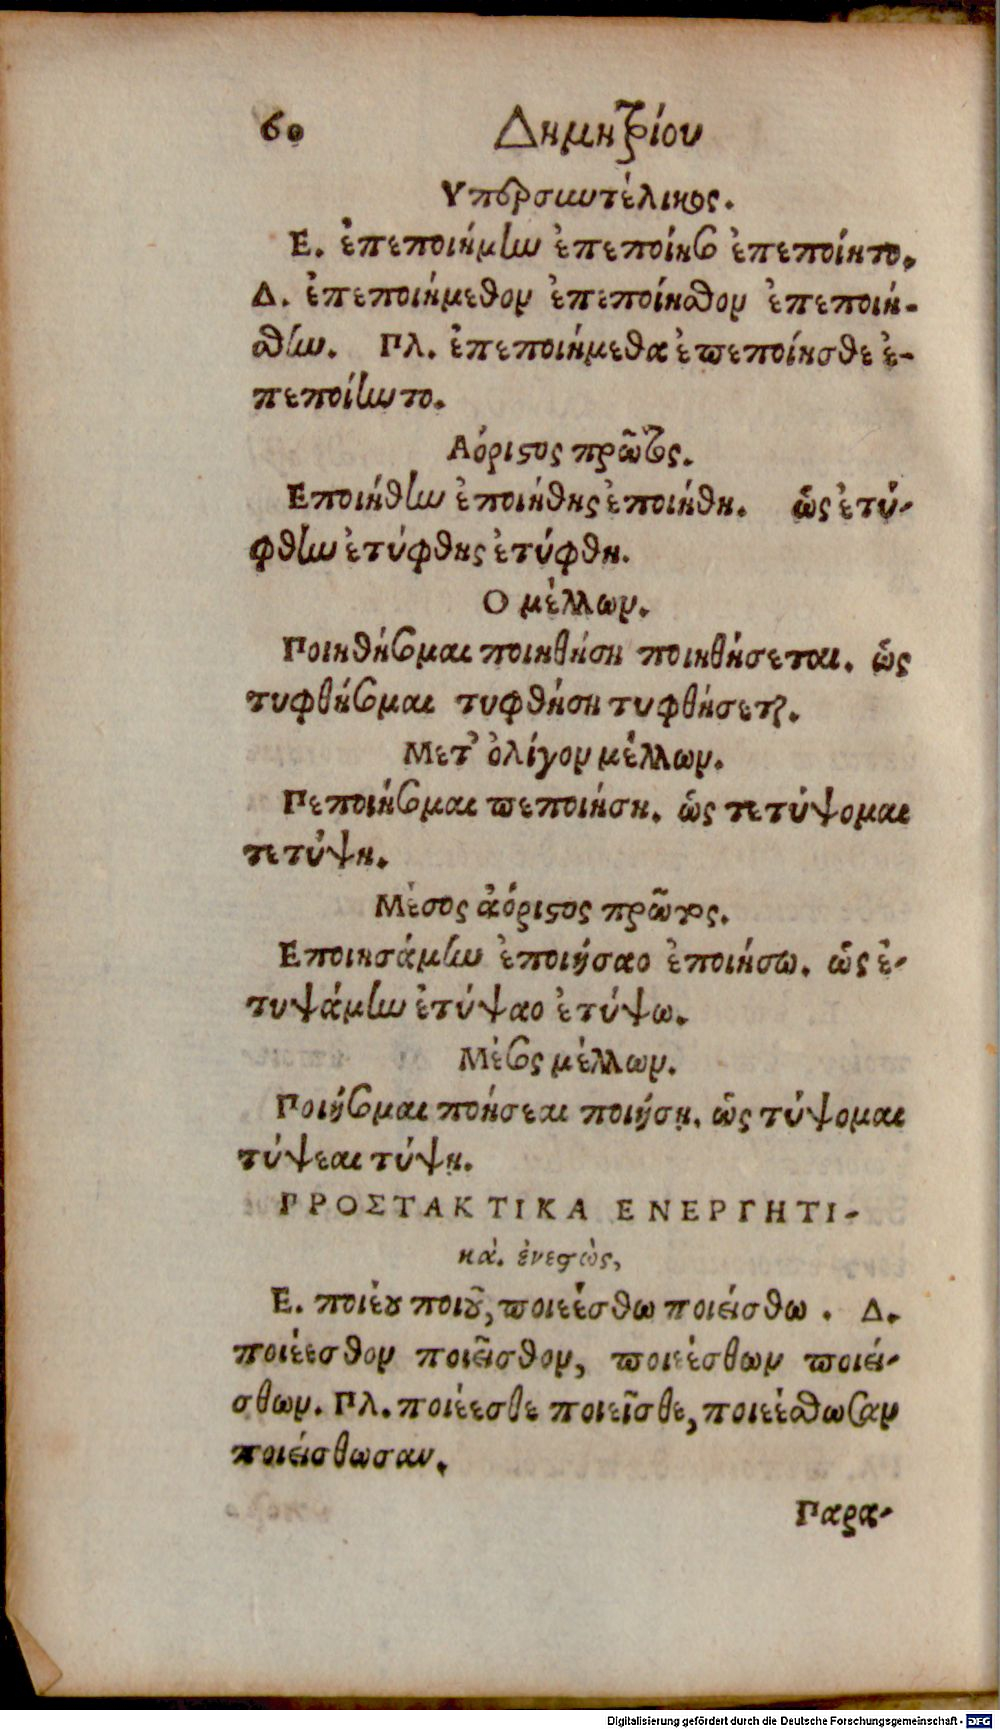 60 Δημητρίου
Υπερσιωτέλικος.
Ε. ἐπεποιήμην ἐπεποίησο ἐπεποίητο.
Δ. ἐπεποιήμεθον ἐπεποίησθον ἐπεποιή-
σθην. Πλ. ἐπεποιήμεθα ἐπεποίησθε ἐ-
πεποίηντο.
Αόριστος πρῶτος.
Εποιήθην ἐποιήθης ἐποιήθη. ὡς ἐτύ-
φθην ἐτύφθης ἐτύφθη.
Ο μέλλων.
Ποιηθήσομαι ποιηθήση ποιηθήσεται. ὡς
τυφθήσομαι τυφθήση τυφθήσεται.
Μετ' ὀλίγον μέλλων.
Πεποιήσομαι πεποιήση. ὡς τετύψομαι
τετύψη.
Μέσος ἀόριστος πρῶτος.
Εποιησάμην ἐποιήσαο ἐποιήσω. ὡς ἐ-
τυψάμην ἐτύψαο ἐτύψω.
Μέσος μέλλων.
Ποιήσομαι ποήσεαι ποιήσῃ. ὡς τύψομαι
τύψεαι τύψῃ.
ΠΡΟΣΤΑΚΤΙΚΑ ΕΝΕΡΓΗΤΙ-
κά. ἐνεστώς,
Ε. ποιέου ποιοῦ, ποιεέσθω ποιείσθω. Δ.
ποιέεσθον ποιεῖσθον, ποιεέσθων ποιεί-
σθων. Πλ. ποιέεσθε ποιεῖσθε, ποιεέσθωσαν
ποιείσθωσαν.
Παρα-
Digitalisierung gefördert durch die Deutsche Forschungsgemeinschaft - DFG